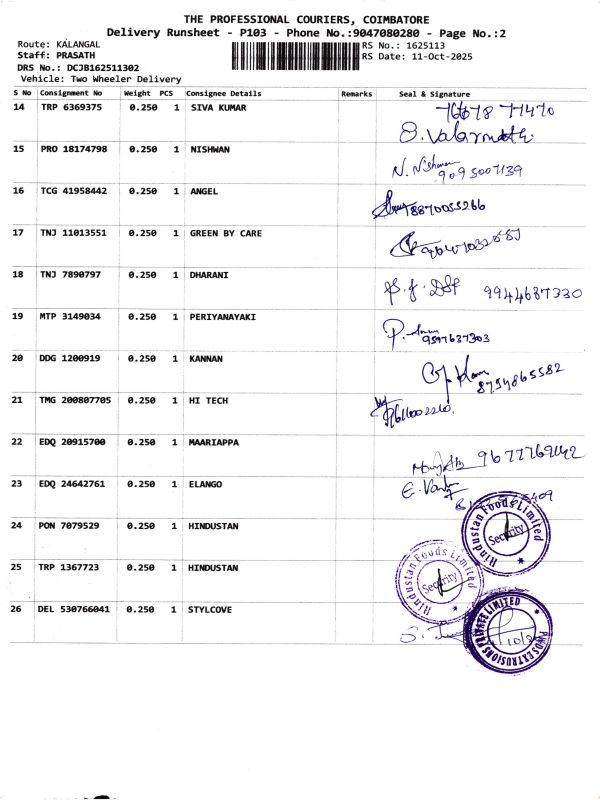 THE PROFESSIONAL COURIERS, COIMBATORE
Delivery Runsheet - P103 - Phone No.:9047080280 - Page No.:2
Route: KALANGAL
Staff: PRASATH
DRS No.: DCJB162511302
Vehicle: Two Wheeler Delivery
RS No.: 1625113
RS Date: 11-Oct-2025
S No Consignment No Weight PCS Consignee Details Remarks Seal & Signature
14 TRP 6369375 0.250 1 SIVA KUMAR
15 PRO 18174798 0.250 1 NISHWAN 9095007139
16 TCG 41958442 0.250 1 ANGEL 8870055266
17 TNJ 11013551 0.250 1 GREEN BY CARE
18 TNJ 7890797 0.250 1 DHARANI 9944687330
19 MTP 3149034 0.250 1 PERIYANAYAKI 9597637303
20 DDG 1200919 0.250 1 KANNAN 8754865582
21 TMG 200807705 0.250 1 HI TECH
22 EDQ 20915700 0.250 1 MAARIAPPA
23 EDQ 24642761 0.250 1 ELANGO
24 PON 7079529 0.250 1 HINDUSTAN Hindustan Foods Limited Security
25 TRP 1367723 0.250 1 HINDUSTAN Hindustan Foods Limited Security
26 DEL 530766041 0.250 1 STYLCOVE EXTRUSIONS PRIVATE LIMITED